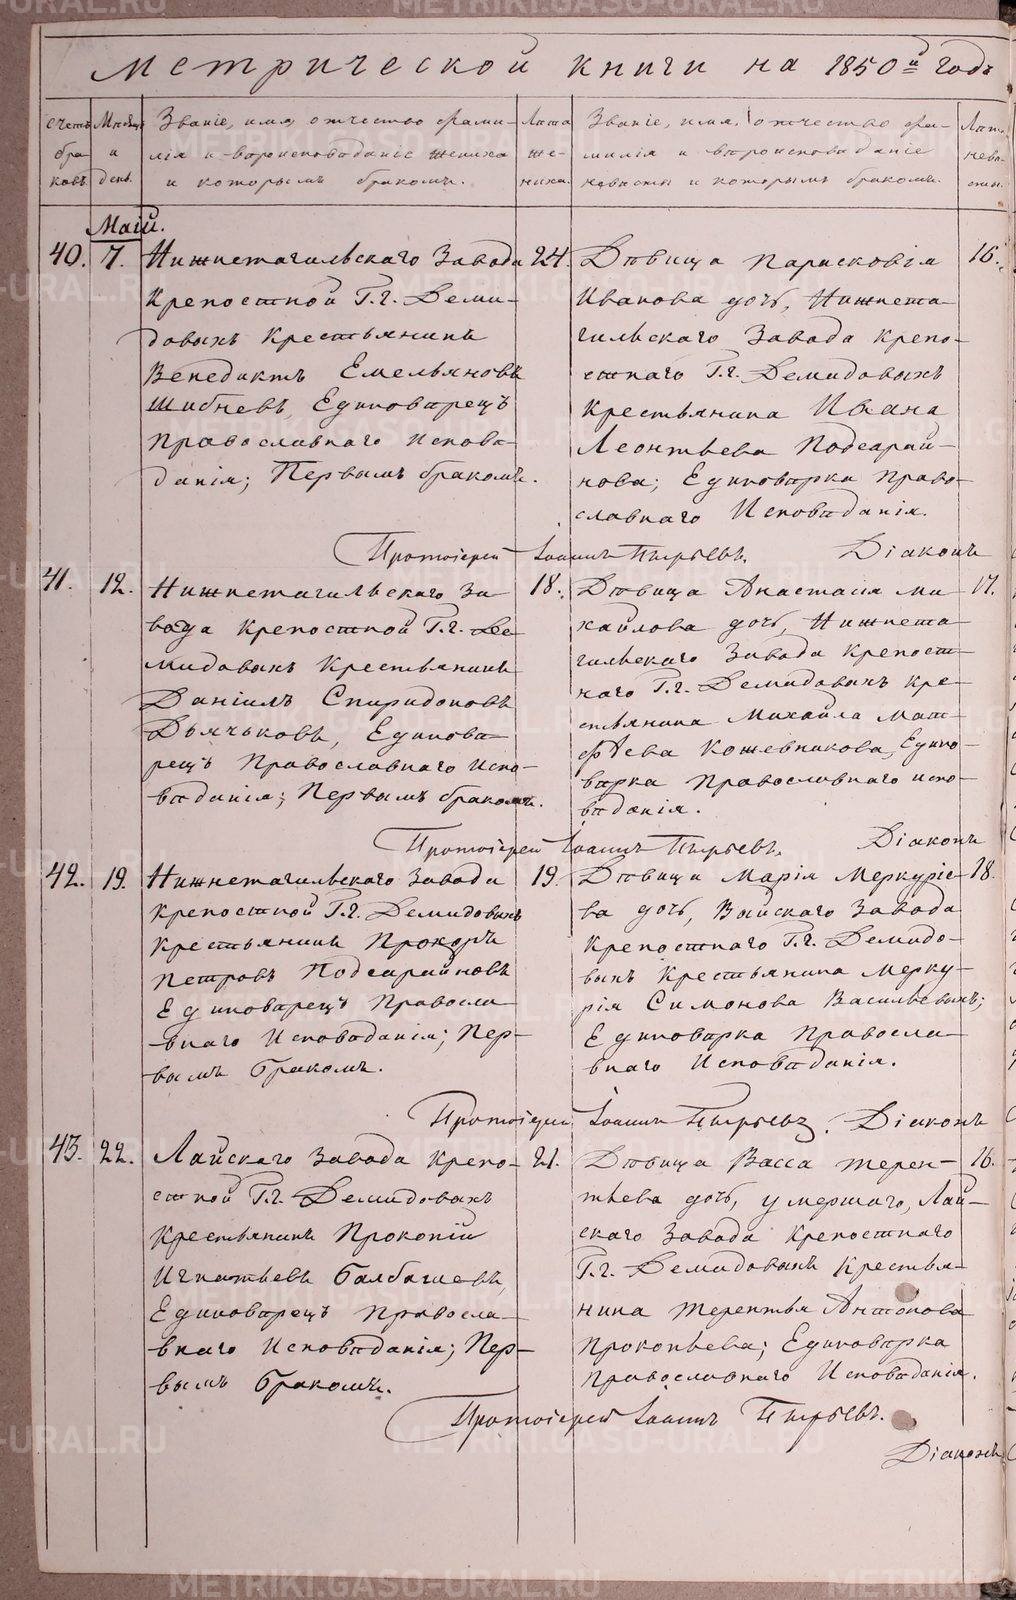 Метрической книги на 1850й годъ
Счетъ браковъ.
Мѣсяцъ и день.
Званіе, имя, отчество, фами-
лія и вѣроисповѣданіе жениха
и которымъ бракомъ.
Лѣта же-
ниха.
Званіе, имя, отчество, фа-
милія и вѣроисповѣданіе
невѣсты и которымъ бракомъ.
Лѣта невѣ-
сты.
Маій.
40. 7. Нижнетагильскаго Завода
Крепостной Г.г. Деми-
довыхъ Крестьянинъ
Венедиктъ Емельяновъ
Шибневъ, Единоверецъ
Православнаго Испове-
данія; Первымъ бракомъ.
24.
Дѣвица Парисковія
Иванова дочь, Нижнета-
гильскаго Завода крепо-
стнаго Г.г. Демидовыхъ
Крестьянина Ивана
Леонтьева Подсарай-
нова; Единоварка Право-
славнаго Исповѣданія.
16.
Протоіерей Іоаннъ Пырьевъ. Діаконъ
41. 12. Нижнетагильскаго За-
вода Крепостной Г.г. Де-
мидовыхъ Крестьянинъ
Даніилъ Спиридоновъ
Дьячьковъ, Единова-
рецъ Православнаго Испо-
вѣданія; Первымъ бракомъ.
18.
Дѣвица Анастасія Ми
хайлова дочь, Нижнета-
гильскаго Завода Крепост-
наго Г.г. Демидовыхъ Кре-
стьянина Михайла Мат-
фѣева Кожевникова, Едино-
варка Православнаго испо-
вѣданія.
17.
Протоіерей Іоаннъ Пырьевъ. Діаконъ
42. 19. Нижнетагильскаго Завода
Крепостной Г.г. Демидовыхъ
Крестьянинъ Прокоръ
Петровъ Подсарайновъ
Единоварецъ Правосла-
внаго Исповѣданія; Пер-
вымъ Бракомъ.
19.
Дѣвица Марія Меркуріе-
ва дочь, Выйскаго Завода
Крепостнаго Г.г. Демидо-
выхъ Крестьянина Мерку-
рія Симонова Васильевыхъ;
Единоварка Правосла-
внаго Исповѣданія.
18.
Протоіерей Іоаннъ Пырьевъ. Діаконъ
43. 22. Лайскаго Завода Крепо-
стной Г.г. Демидовыхъ
Крестьянинъ Прокопій
Игнатьевъ Балбашевъ,
Единоварецъ Правосла-
внаго Исповѣданія; Пер-
вымъ Бракомъ.
21.
Дѣвица Васса Терен-
тьева дочь, умершаго, Лай-
скаго Завода Крепостнаго
Г.г. Демидовыхъ Крестья-
нина Терентья Антонова
Прокопьева; Единоварка
Православнаго Исповѣданія.
16.
Протоіерей Іоаннъ Пырьевъ.
Діаконъ
METRIKI.GASO-URAL.RU